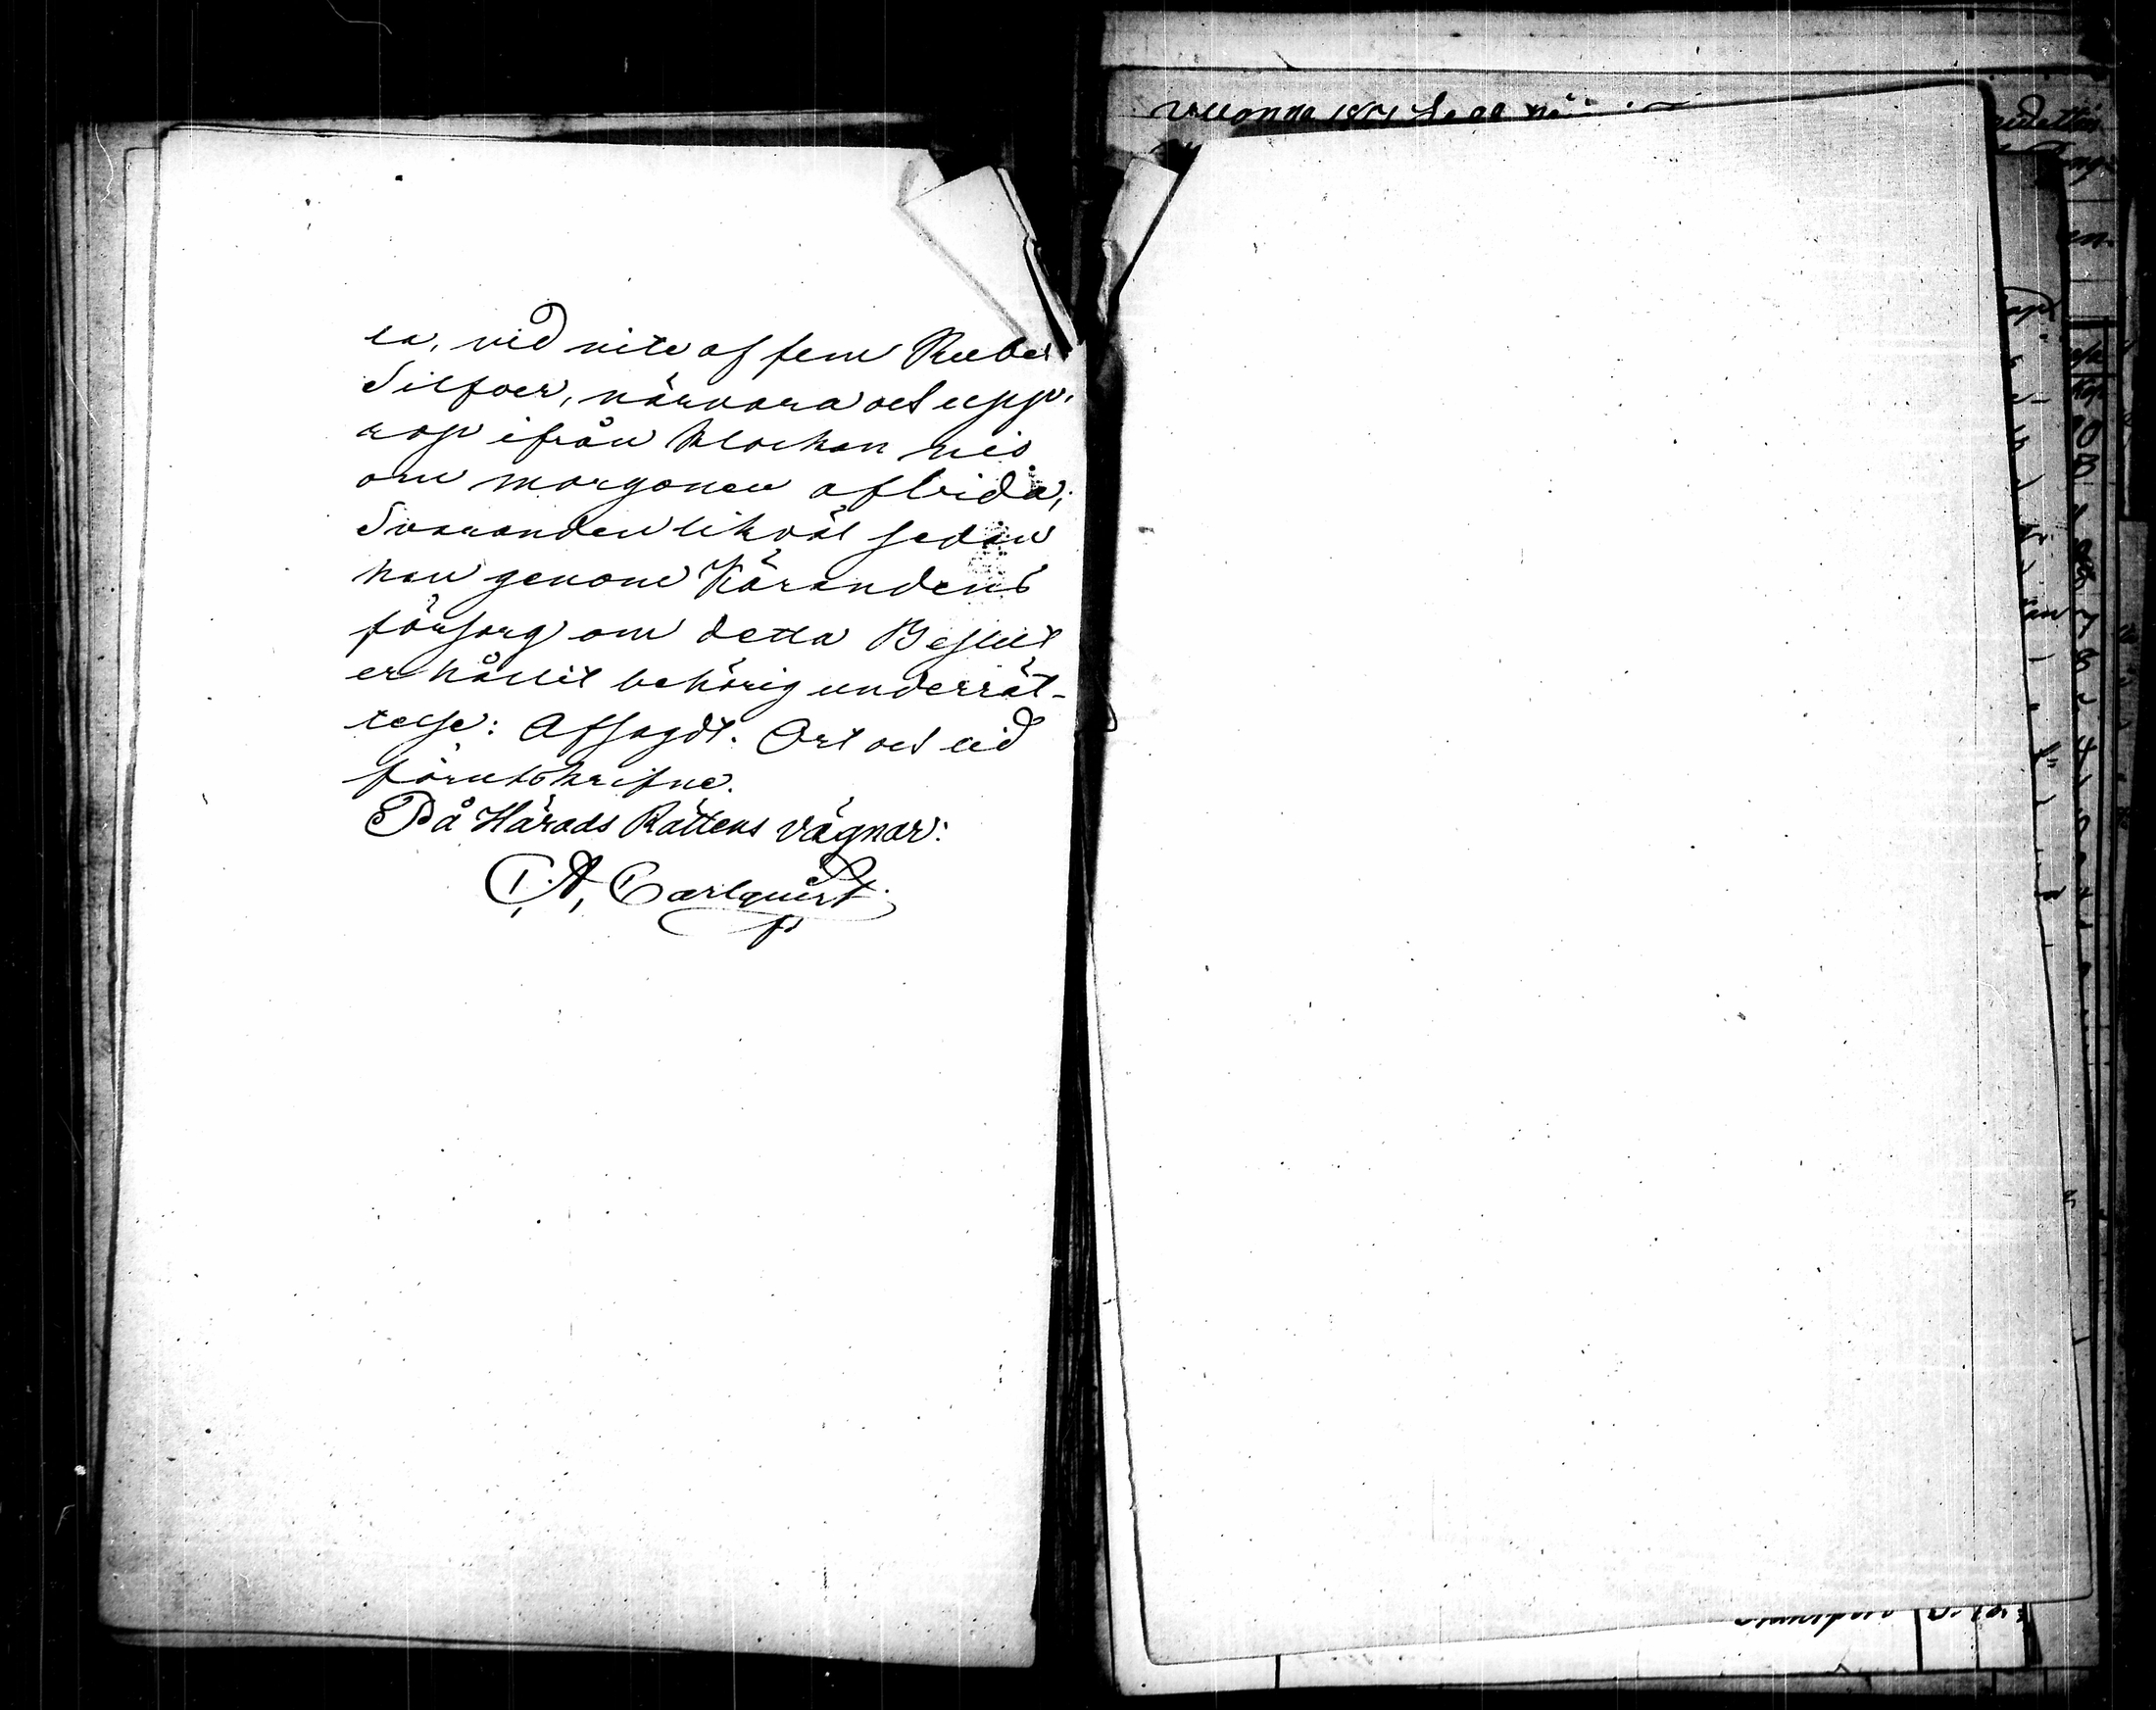 la, vid vite af fem Rubel
Silfver, närvara och upp-
rop ifrån klockan nio
om morgonen afbida;
Svaranden likväl sedan
han genom Kärandens
försorg om detta Beslut
erhållit behörig underrät-
telse: Afsagdt. Ort och tid
förutskrifne.
På Härads Rättens vägnar:
C. A. Carlquist
Vuonna